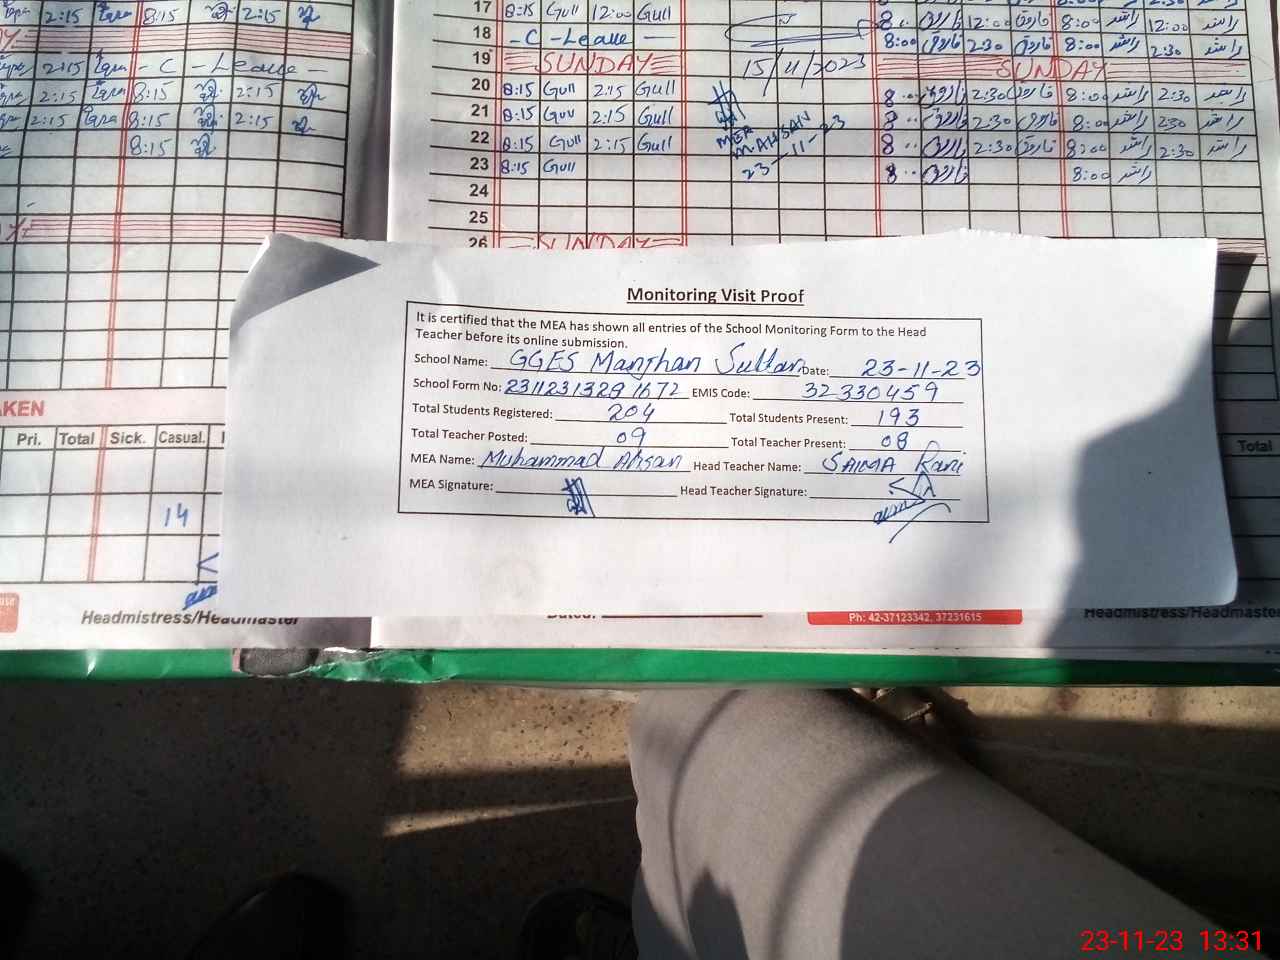 2:15 Iqra 8:15 2:15
2:15 Iqra - C - Leave -
2:15 Iqra 8:15 2:15
2:15 Iqra 8:15 2:15
8:15
17 8:15 Gull 12:00 Gull
18 - C - Leave -
19 SUNDAY
20 8:15 Gull 2:15 Gull
21 8:15 Gull 2:15 Gull
22 8:15 Gull 2:15 Gull
23 8:15 Gull
24
25
26 SUNDAY
15/11/2023
MEA
M. AHSAN
23-11-23
8:00 فاروق 12:00 فاروق 8:00 راشد 12:00 راشد
8:00 فاروق 2:30 فاروق 8:00 راشد 2:30 راشد
SUNDAY
8:00 فاروق 2:30 فاروق 8:00 راشد 2:30 راشد
8:00 فاروق 2:30 فاروق 8:00 راشد 2:30 راشد
8:00 فاروق 2:30 فاروق 8:00 راشد 2:30 راشد
8:00 فاروق 8:00 راشد
Monitoring Visit Proof
It is certified that the MEA has shown all entries of the School Monitoring Form to the Head
Teacher before its online submission.
School Name: GGES Manjhan Sultan Date: 23-11-23
School Form No: 23112313291672 EMIS Code: 32330459
Total Students Registered: 204 Total Students Present: 193
Total Teacher Posted: 09 Total Teacher Present: 08
MEA Name: Muhammad Ahsan Head Teacher Name: SAIMA Rani
MEA Signature: Head Teacher Signature:
AKEN
Pri. Total Sick. Casual.
14
Total
Headmistress/Headmaster
Dated:
Ph: 42-37123342, 37231615
Headmistress/Headmaster
23-11-23 13:31